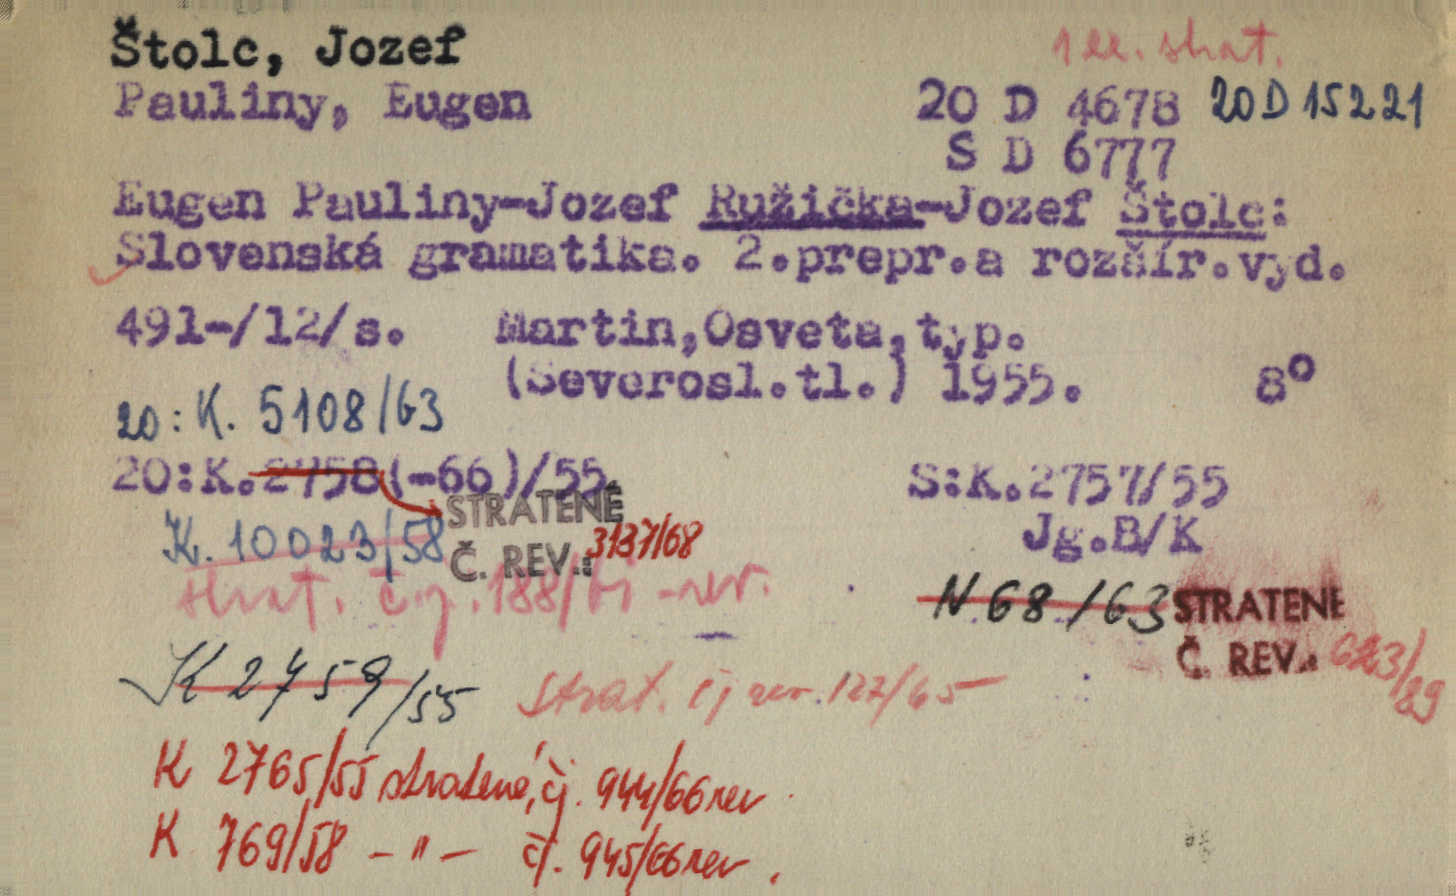 Štolc, Jozef
1 ex. strat.
Pauliny, Eugen
20 D 4678 20 D 15221
S D 6777
Eugen Pauliny-Jozef Ružička-Jozef Štolc:
Slovenská gramatika. 2.prepr.a rozšír.vyd.
491-/12/s. Martin,Osveta,typ.
(Severosl.tl.) 1955. 8°
20: K. 5108/63
20:K.2758(-66)/55 S:K.2757/55
STRATENÉ
K. 10023/58 Jg.B/K
Č. REV.: 3137/68
strat. č.j. 188/61 -rev.
N 68/63 STRATENÉ
Č. REV.: 623/89
K 2759/55 strat. čj rev. 127/65
K 2765/55 stratené, čj. 944/66 rev
K 769/58 - " - čj. 945/66 rev.